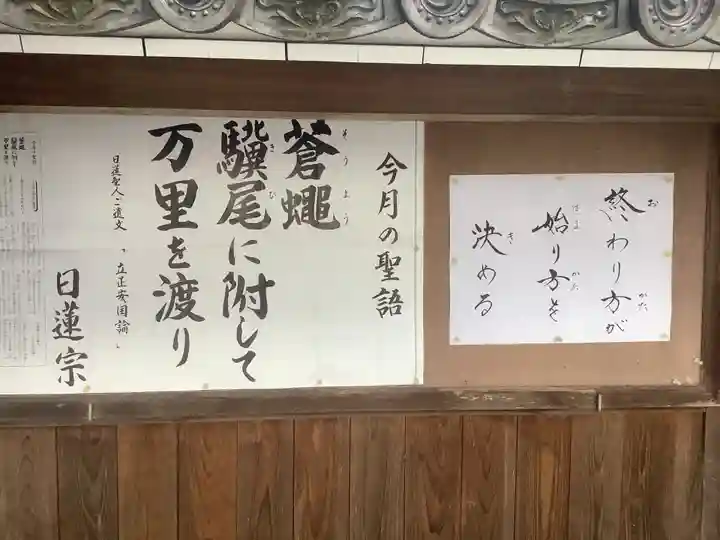 終わり方が
おかた
始り方を
はじまかた
決める
き
今月の聖語
蒼蠅
そうよう
驥尾に附して
きび
万里を渡り
日蓮聖人ご遺文「立正安国論」
日蓮宗